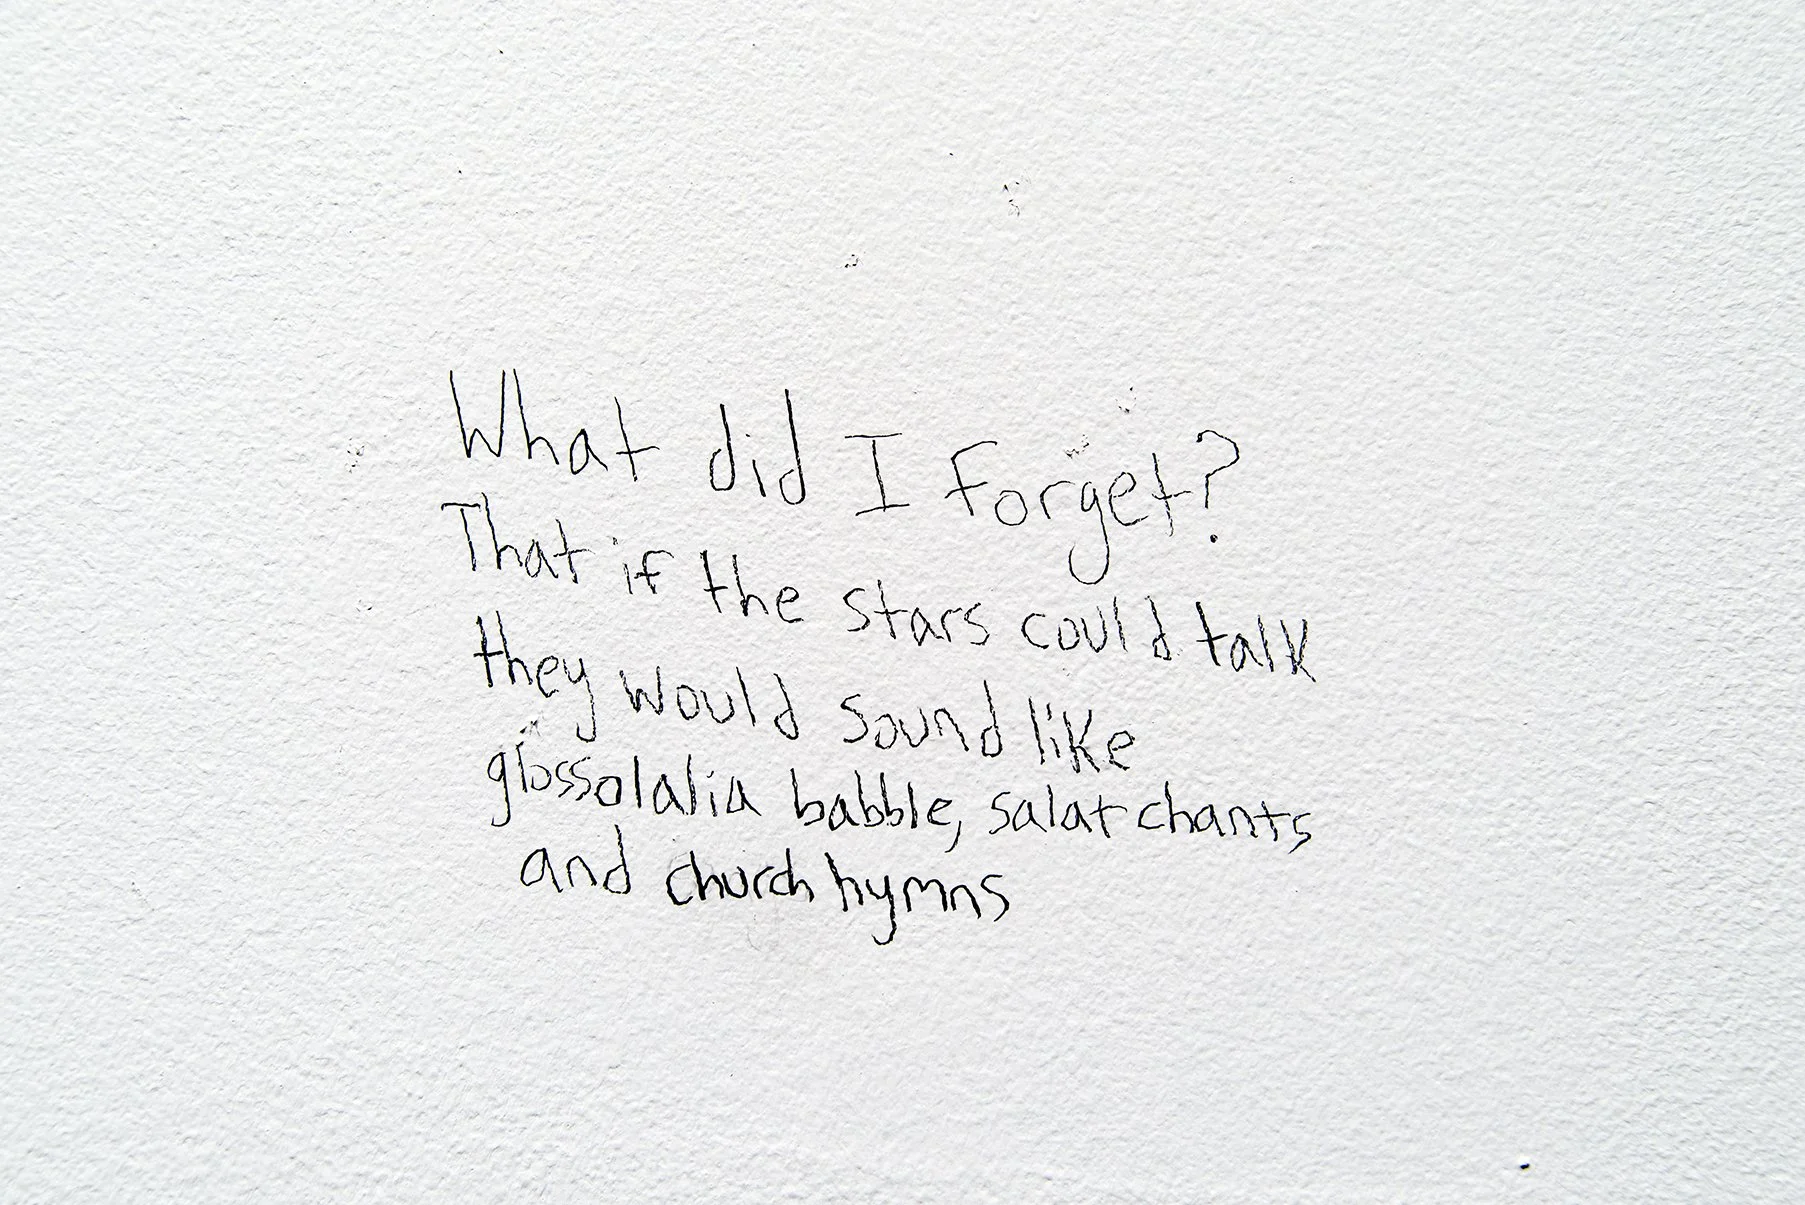 What did I forget?
That if the stars could talk
they would sound like
glossolalia babble, salat chants
and church hymns